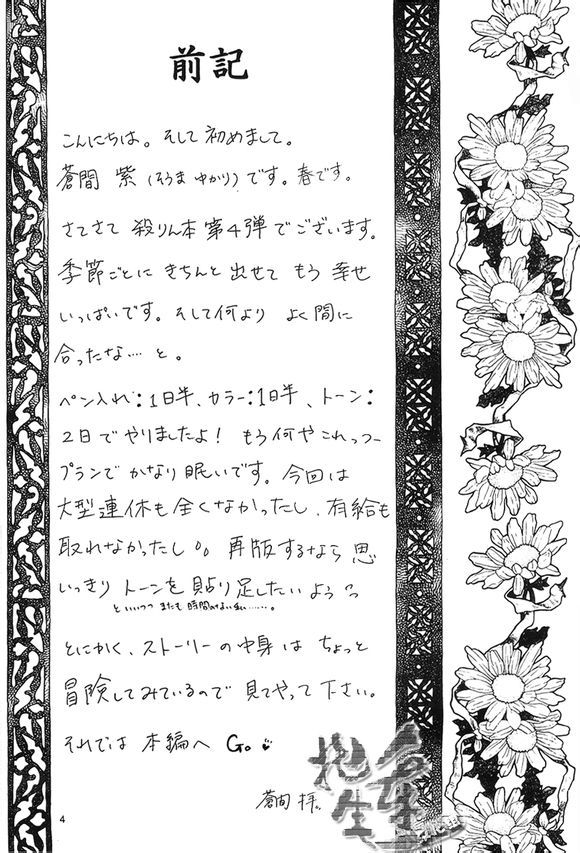 前記
こんにちは。そして初めまして。
蒼間 紫 (そうま ゆかり) です。春です。
さてさて 殺りん本 第4弾 でございます。
季節ごとに きちんと 出せて もう 幸せ
いっぱいです。そして何より よく間に
合ったな… と。
ペン入れ:1日半、カラー:1日半、トーン:
2日でやりましたよ! もう何やこれっつー
プランで かなり眠いです。今回は
大型連休も全くなかったし、有給も
取れなかったし。。再版するなら 思
いっきり トーンを 貼り足したいようっ
といいつつ またも 時間のない私……。
とにかく、ストーリーの中身は ちょっと
冒険してみているので 見てやって 下さい。
それでは 本編へ Go
蒼間 拝。
4